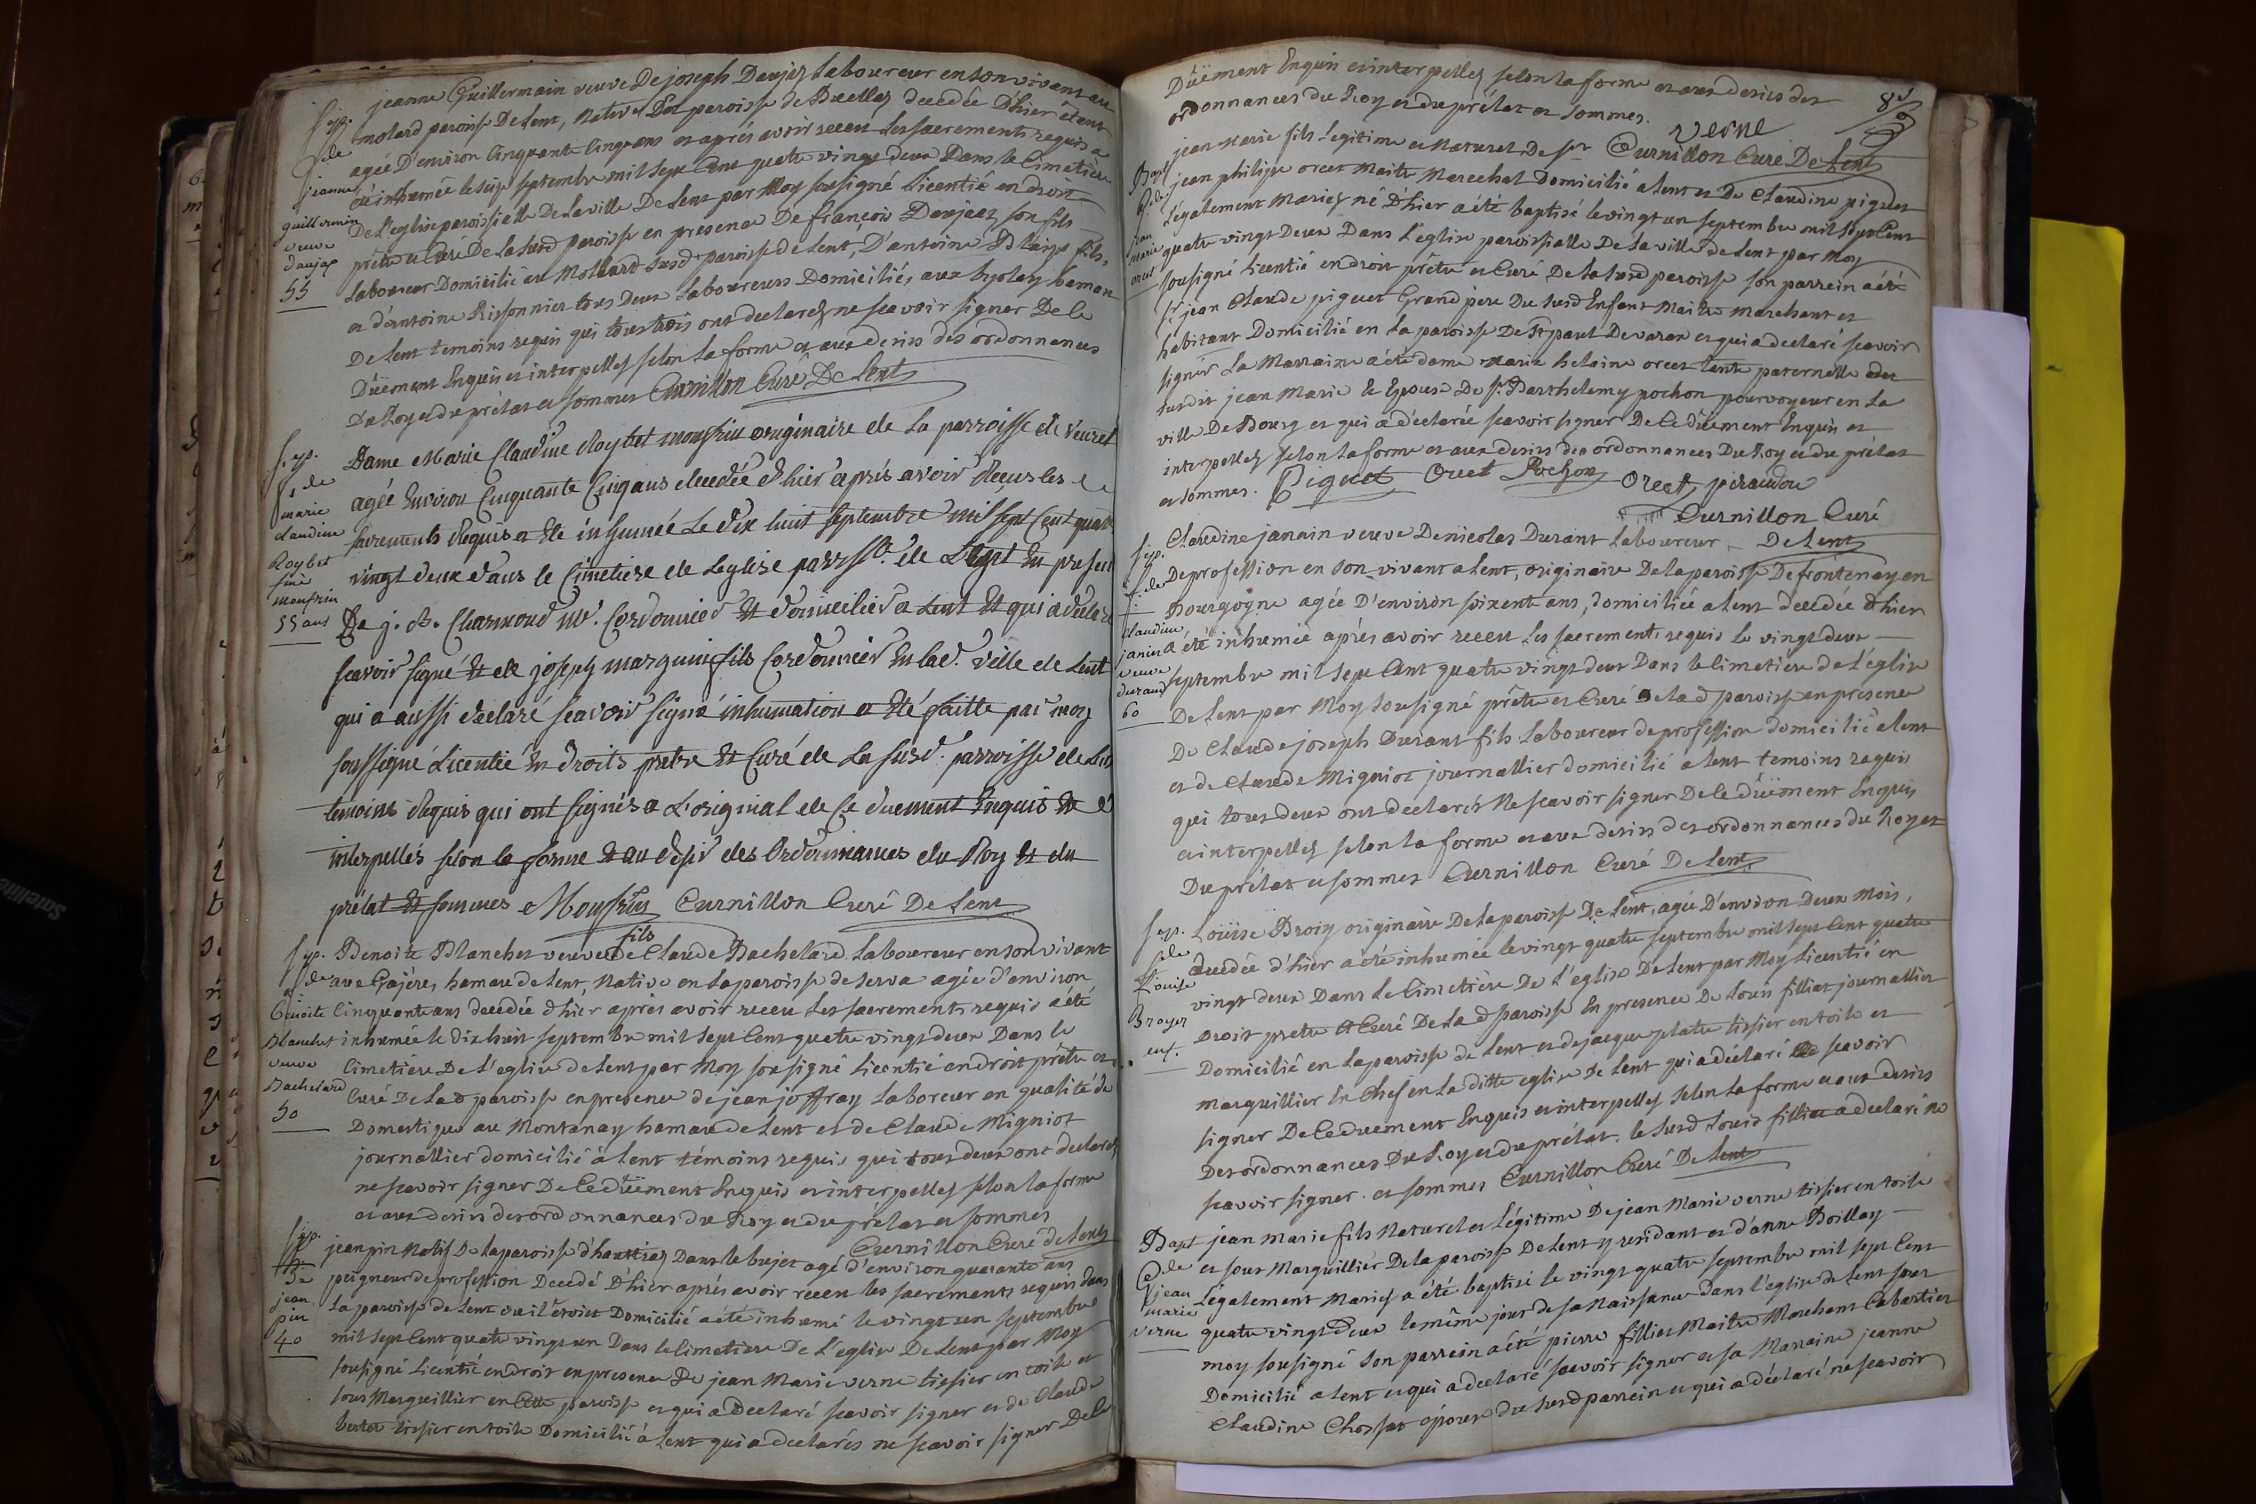 Sep.
de
jeanne
guillermin
veuve
daujaz
55
jeanne Guillermain veuve De joseph Daujaz Laboureur en son vivant au
molard paroisse De Lent, Native De la paroisse de Buellas decedée D'hier étant
agée D'environ Cinquante Cinq ans et aprés avoir receu Les sacrements requis a
été inhumée le six septembre mil sept Cent quatre vingt deux Dans le Cimetière
De L'eglise paroissielle De La ville De Lent par Moy sousigné Licentié en droit
prêtre et Curé De La susd paroisse en presence De françois Daujaz son fils
Laboureur Domicilié au Mollard susd paroisse de Lent, D'antoine Blaise fils,
et d'antoine Rissonnier tous Deux Laboureurs Domiciliés aux hyolay hamau
De Lent temoins requis qui tous trois ont declarés ne scavoir signer De Ce
Düement Enquis et interpellés selon La forme et aux desirs des ordonnances
Du Roy et du prélat et sommes Curnillon Curé De Lent
Sep.
de
marie
claudine
Roybet
monfrin
55 ans
Dame Marie Claudine Roybet monfrin originaire de La parroisse de
agée Environ Cinquante Cinq ans decedée d'hier aprés avoir Reçus les
sacrements Requis a Eté inhumée Le dix huit septembre mil sept Cent quatre
vingt deux dans le Cimetiere de Leglise parrssle. de Lent En presence
De j. B. Charmond me. Cordonnier Et domicilier a Lent Et qui a declaré
scavoir signé Et de joseph marguin fils Cordonnier En lad. ville de Lent
qui a aussi declaré scavoir signé inhumation a Eté faitte par moy
soussigné Licentié En droits pretre Et Curé de La susd. parroisse de Lent
temoins Requis qui ont signés a L'original de Ce duement Enquis Et
interpellés selon la forme Et au desir des Ordonnances du Roy Et du
prélat Et sommes Monfrin fils Curnillon Curé De Lent
Sep.
de
Benoite
Blanchet
veuve
Bachelard
50
Benoite Blanchet veuve de Claude Bachelard Laboureur en son vivant
aux hamau de Lent, Native en La paroisse de Serva agée d'environ
Cinquante ans decedée d'hier aprés avoir receu Les sacrements requis a été
inhumée le dix huit septembre mil sept Cent quatre vingt deux Dans le
Cimetière De L'eglise de Lent par Moy sousigné Licentié en droit prêtre et
Curé De La d paroisse en presence de jean joffray Laboreur en qualité de
Domestique au Montanay hamau de Lent et de Claude Migniot
journallier domicilié à Lent témoins requis qui tous deux ont declarés
ne scavoir signer De Ce Düement Enquis et interpellés selon la forme
et aux desirs des ordonnances du Roy et du prélat et sommes
Curnillon Curé de Lent
Sep.
De
jean
pin
40
jean pin Natif De la paroisse d'hautriaz Dans le bujet agé d'environ quarante ans
peigneur de profession Decedé D'hier aprés avoir receu les sacrements requis dans
La paroisse de Lent ou il étoit Domicilié a été inhumé le vingt un septembre
mil sept Cent quatre vingt un Dans le Cimetiere De L'eglise De Lent par Moy
sousigné Licentié en droit en presence De jean Marie verne tissier en toile et
sous Marguillier en Cette paroisse et qui a Declaré scavoir signer et de Claude
tissier en toile Domicilié à Lent qui a declarés ne scavoir signer De Ce
Düement Enquis et interpellés selon la forme et aux desirs des
ordonnances du Roy et du prélat et sommes.
verne
Curnillon Curé De Lent
Bapt
de
jean
marie
orcet
jean Marie fils Legitime et Naturel De sr
jean philippe orcet Maitre Marechal Domicilié a Lent et De Claudine piquet
Légalement Mariés né D'hier a été baptisé le vingt un septembre mil sept Cent
quatre vingt Deux Dans L'eglise paroissialle De La ville de Lent par Moy
sousigné Licentié en droit prêtre et Curé De La susd paroisse son parrein a été
sr jean Claude piquet Grand pere Du susd Enfant Maitre marchant et
habitant Domicilié en La paroisse De St paul De varax et qui a declaré scavoir
signer La Marraine a été dame marie helaine orcet tente paternelle dud
susdit jean Marie et Epouse De sr Barthelemy pochon pourvoyeur en La
ville De Bourg et qui a déclarée scavoir signer De Ce düement Enquis et
interpellés selon la forme et aux desirs des ordonnances Du Roy et du prélat
et sommes. Piquet Orcet Pochon Orcet pirandon
Curnillon Curé
De Lent
Sep.
de
Claudine
janin
veuve
durand
60
Claudine janain veuve De nicolas Durant Laboureur
De profession en son vivant a Lent, originaire De La paroisse De frontenay en
Bourgogne agée D'environ soixent ans, domiciliée a Lent decedée d'hier
a été inhumée aprés avoir receu Les sacrements requis le vingt deux
septembre mil sept Cent quatre vingt deux Dans le Cimetiere de L'église
De Lent par Moy sousigné prêtre et Curé De La d paroisse en presence
De Claude joseph Durant fils Laboureur de profession domicilié a Lent
et de Claude Migniot journallier domicilié a Lent temoins requis
qui tous deux ont declarés Ne scavoir signer De Ce Düement Enquis
et interpellés selon la forme et aux desirs des ordonnances du Roy et
Du prélat et sommes Curnillon Curé De Lent
Sep.
de
Louise
Broyer
enf.
Loüise Broiy originaire De La paroisse De Lent, agée D'environ Deux Mois,
decedée d'hier a été inhumée le vingt quatre septembre mil sept Cent quatre
vingt deux Dans Le Cimetière De L'église De Lent par Moy Licentié en
Droit pretre et Curé De La d paroisse En presence De Louis filliat journallier
Domicilié en La paroisse de Lent et de jacque platre tissier en toile et
marguillier En Chef en La ditte eglise De Lent qui a déclaré scavoir
signer De Ce duement Enquis et interpellés selon La forme et aux desirs
Des ordonnances Du Roy et du prélat. le susd Louis filliat a declaré ne
scavoir signer. et sommes Curnillon Curé De Lent
Bapt
de
jean
marie
verne
jean Marie fils Naturel et Légitime De jean Marie verne tissier en toile
et sous Marguillier De la paroisse De Lent y residant et d'anne Boillay
Légalement Mariés a été baptisé le vingt quatre septembre mil sept Cent
quatre vingt Deux le même jour de sa Naissance dans l'eglise de Lent par
moy sousigné son parrein a été pierre filliat Maitre Marchant Cabartier
Domicilié a Lent et qui a declaré scavoir signer et sa Marraine jeanne
Claudine Chossat épouse du susd parrein et qui a déclaré ne scavoir